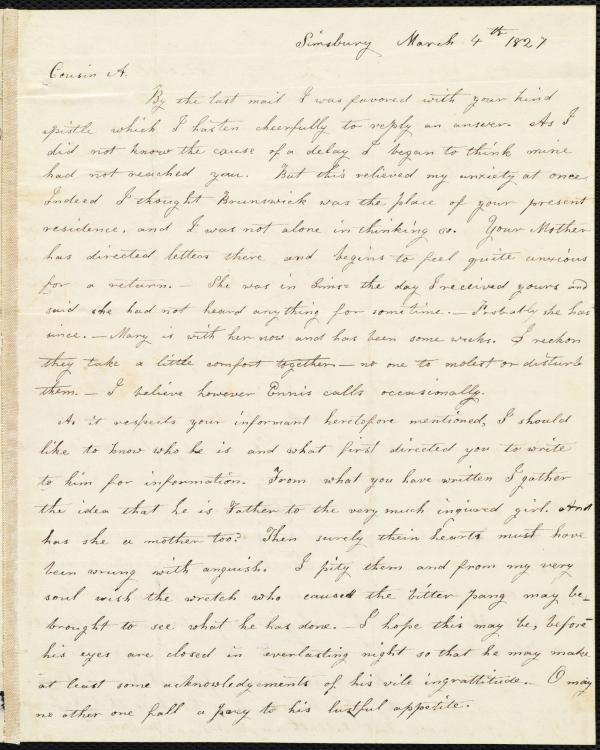 Simsbury March 4th 1827
Cousin A.
By the last mail I was favored with your kind
epistle which I hasten cheerfully to reply an answer. As I
did not know the cause of a delay I began to think mine
had not reached you. But this relieved my anxiety at once
Indeed I thought Brunswick was the place of your present
residence, and I was not alone in thinking so. Your Mother
has directed letters there and begins to feel quite anxious
for a return. — She was in Sims the day I received yours and
said she had not heard anything for some time. — Probably she has
since. — Mary is with her now and has been some weeks. I reckon
they take a little comfort together — no one to molest or disturb
them. — I believe however Ennis calls occasionally.
As it respects your informant heretofore mentioned, I should
like to know who he is and what first directed you to write
to him for information. From what you have written I gather
the idea that he is Father to the very much ingured girl. And
has she a mother too? Then surely their hearts must have
been wrung with anguish. I pity them and from my very
soul wish the wretch who caused the bitter pang may be
brought to see what he has done. — I hope this may be, before
his eyes are closed in everlasting night so that he may make
at least some acknowledgements of his vile ingrattitude. — O may
no other one fall a prey to his lustful appetite.